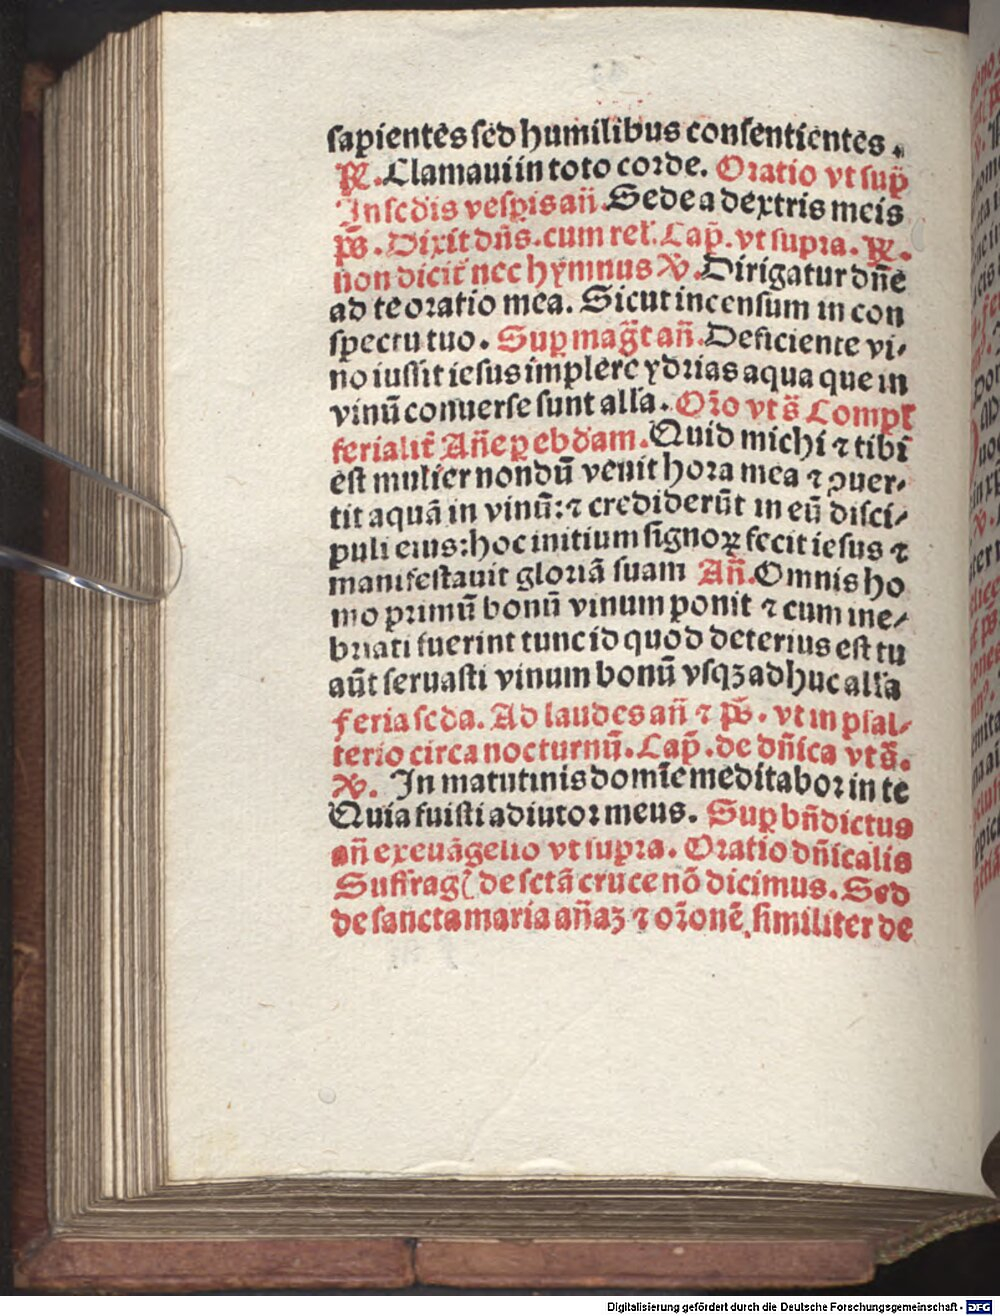 sapientes sed humilibus consentientes.
℟. Clamaui in toto corde. Oratio vt sup̄
In scdis vesp̄is añ. Sede a dextris meis
p̄s. Dixit dñs. cum rel̄. Cap̄. vt supra. ℟.
non dicit̄ nec hymnus ℣. Dirigatur dñe
ad te oratio mea. Sicut incensum in con
spectu tuo. Sup̄ mag̃t añ. Deficiente vi⸗
no iussit iesus implere ydrias aqua que in
vinū conuerse sunt alla. Or̄o vt s̄ Compl̄
ferialit̄ Añe ꝑ ebdam. Quid michi ⁊ tibi
est mulier nondū venit hora mea ⁊ ꝯuer⸗
tit aquā in vinū: ⁊ crediderūt in eū disci⸗
puli eius: hoc initium signoꝝ fecit iesus ⁊
manifestauit gloriā suam Añ. Omnis ho
mo primū bonū vinum ponit ⁊ cum ine⸗
briati fuerint tunc id quod deterius est tu
aūt seruasti vinum bonū vsqꝫ adhuc alla
feria scda. Ad laudes añ ⁊ p̄s. vt in psal⸗
terio circa nocturnū. Cap̄. de dñica vt s̄.
℣. In matutinis domīe meditabor in te
Quia fuisti adiutor meus. Sup̄ bñdictus
añ ex euāgelio vt supra. Oratio dñicalis
Suffraḡ de sctā cruce nō dicimus. Sed
de sancta maria añaꝫ ⁊ or̄onē similiter de
Digitalisierung gefördert durch die Deutsche Forschungsgemeinschaft - DFG